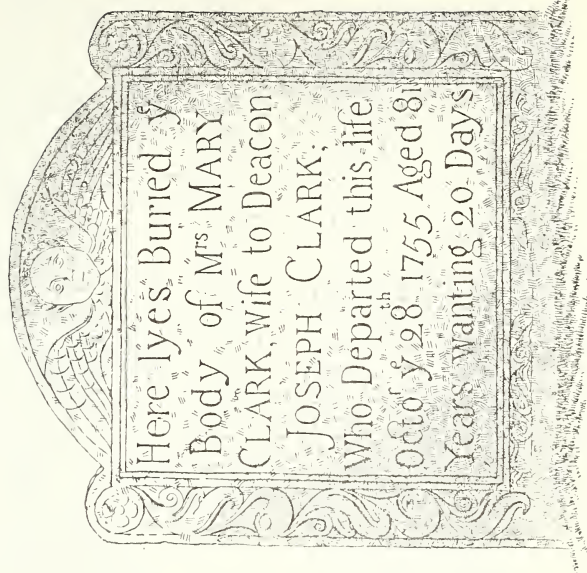 Here lyes Buried yͤ
Body of Mʳˢ MARY
CLARK, Wife to Deacon
JOSEPH CLARK;
Who Departed this life
Octoʳ yͤ 28ᵗʰ 1755 Aged 81
Years wanting 20 Days